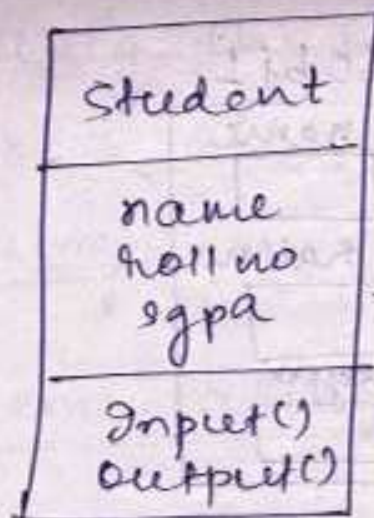 Student
name
roll no
sgpa
Input()
output()